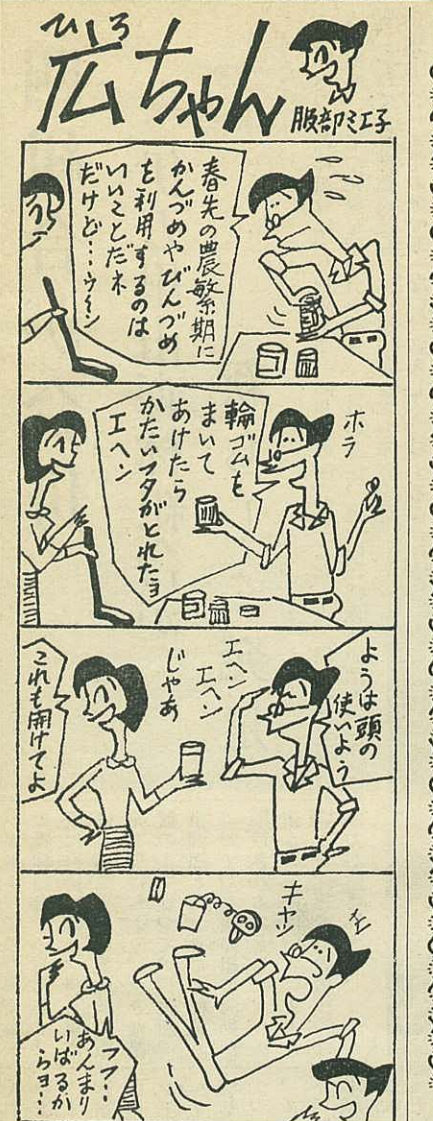 ひろ
広ちゃん
服部ミエ子
春先の農繁期に
かんづめやびんづめ
を利用するのは
いいことだネ
だけど…ウーン
ホラ
輪ゴムを
まいて
あけたら
かたいフタがとれたョ
エヘン
ようは頭の
使へよう
エヘン
エヘン
じゃあ
これも開けてよ
キャッ
フフ…
あんまり
いばるか
らヨ…